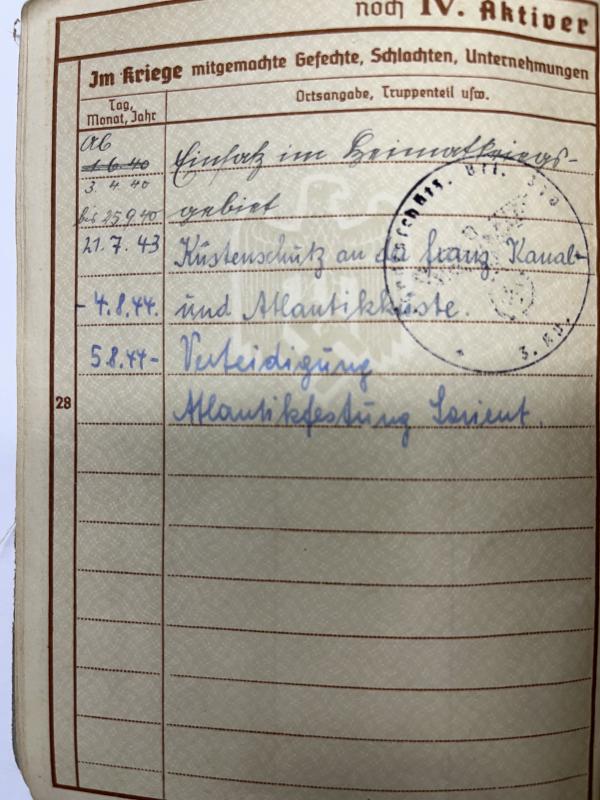 noch IV. Aktiver
Im Kriege mitgemachte Gefechte, Schlachten, Unternehmungen
Tag,
Monat, Jahr
Ortsangabe, Truppenteil usw.
Ab
1.6.40
3. 4. 40
Einsatz im Heimatkriegs-
bis 25.9.40 gebiet
21.7.43 Küstenschutz an der franz. Kanal-
- 4.8.44. und Atlantikküste.
5.8.44- Verteidigung
28
Atlantikfestung Lorient.
3. Kp.